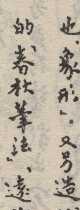 也、象形」。又另造
的、春秋筆法」、遠